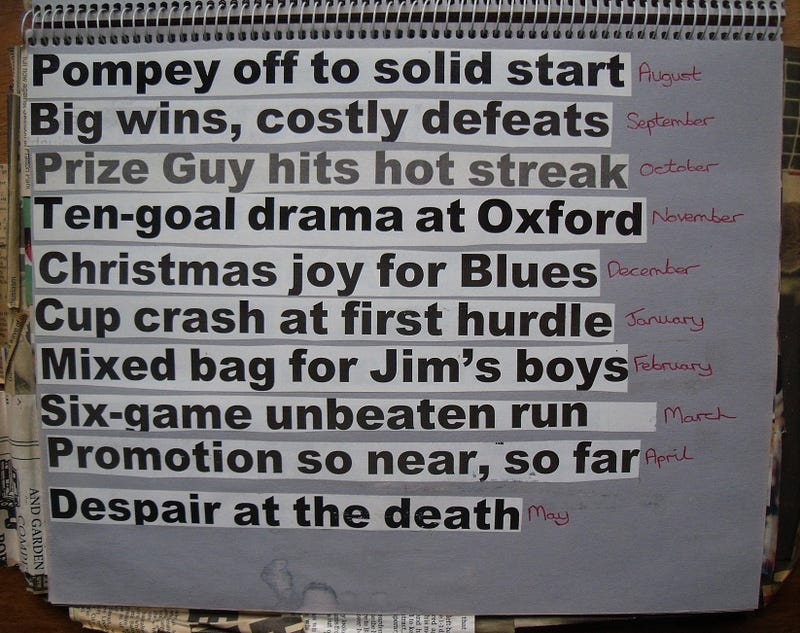 Pompey off to solid start August
Big wins, costly defeats September
Prize Guy hits hot streak October
Ten-goal drama at Oxford November
Christmas joy for Blues December
Cup crash at first hurdle January
Mixed bag for Jim's boys February
Six-game unbeaten run March
Promotion so near, so far April
Despair at the death May
AND GARDEN